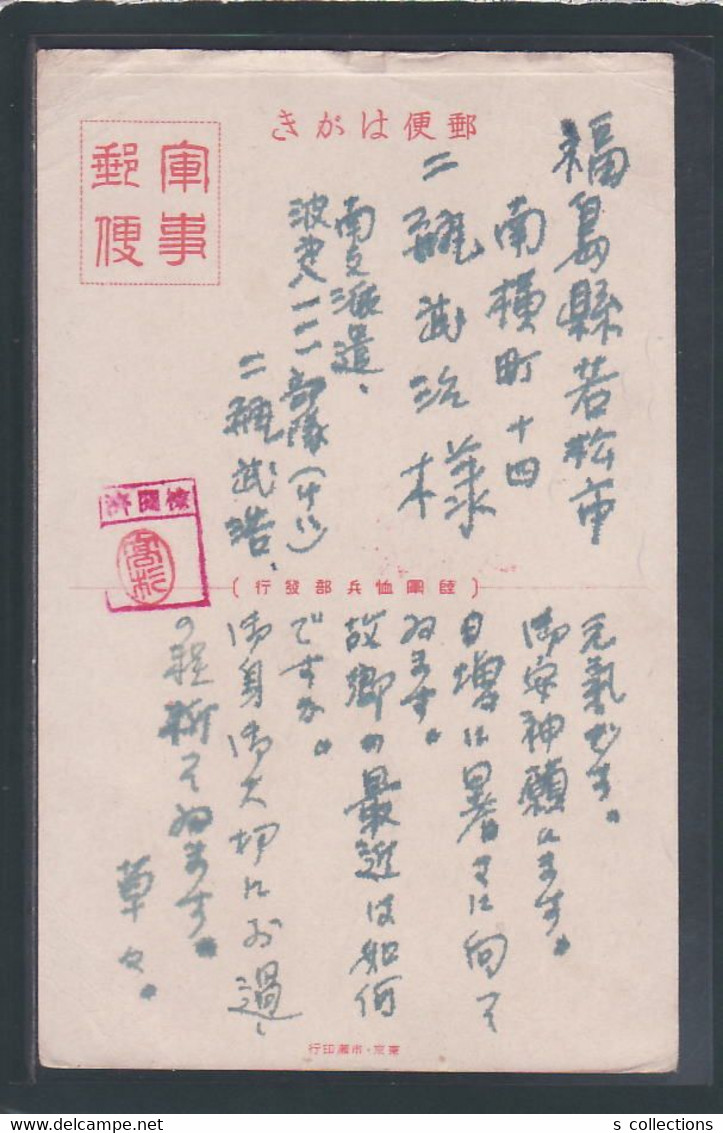 郵便はがき
軍事郵便
福島縣若松市
南横町十四
二瓶武治様
南支派遣、
波第八一一一部隊
二瓶武浩、
検閲済
高杉
(陸軍恤兵部發行)
元氣です。
御安神願ひます。
日増に暑さに向って
ゐます。
故郷の最近は如何
ですか。
御身御大切にお過し
の程祈ってゐます。
草々。
東京・市瀬印行
s collections